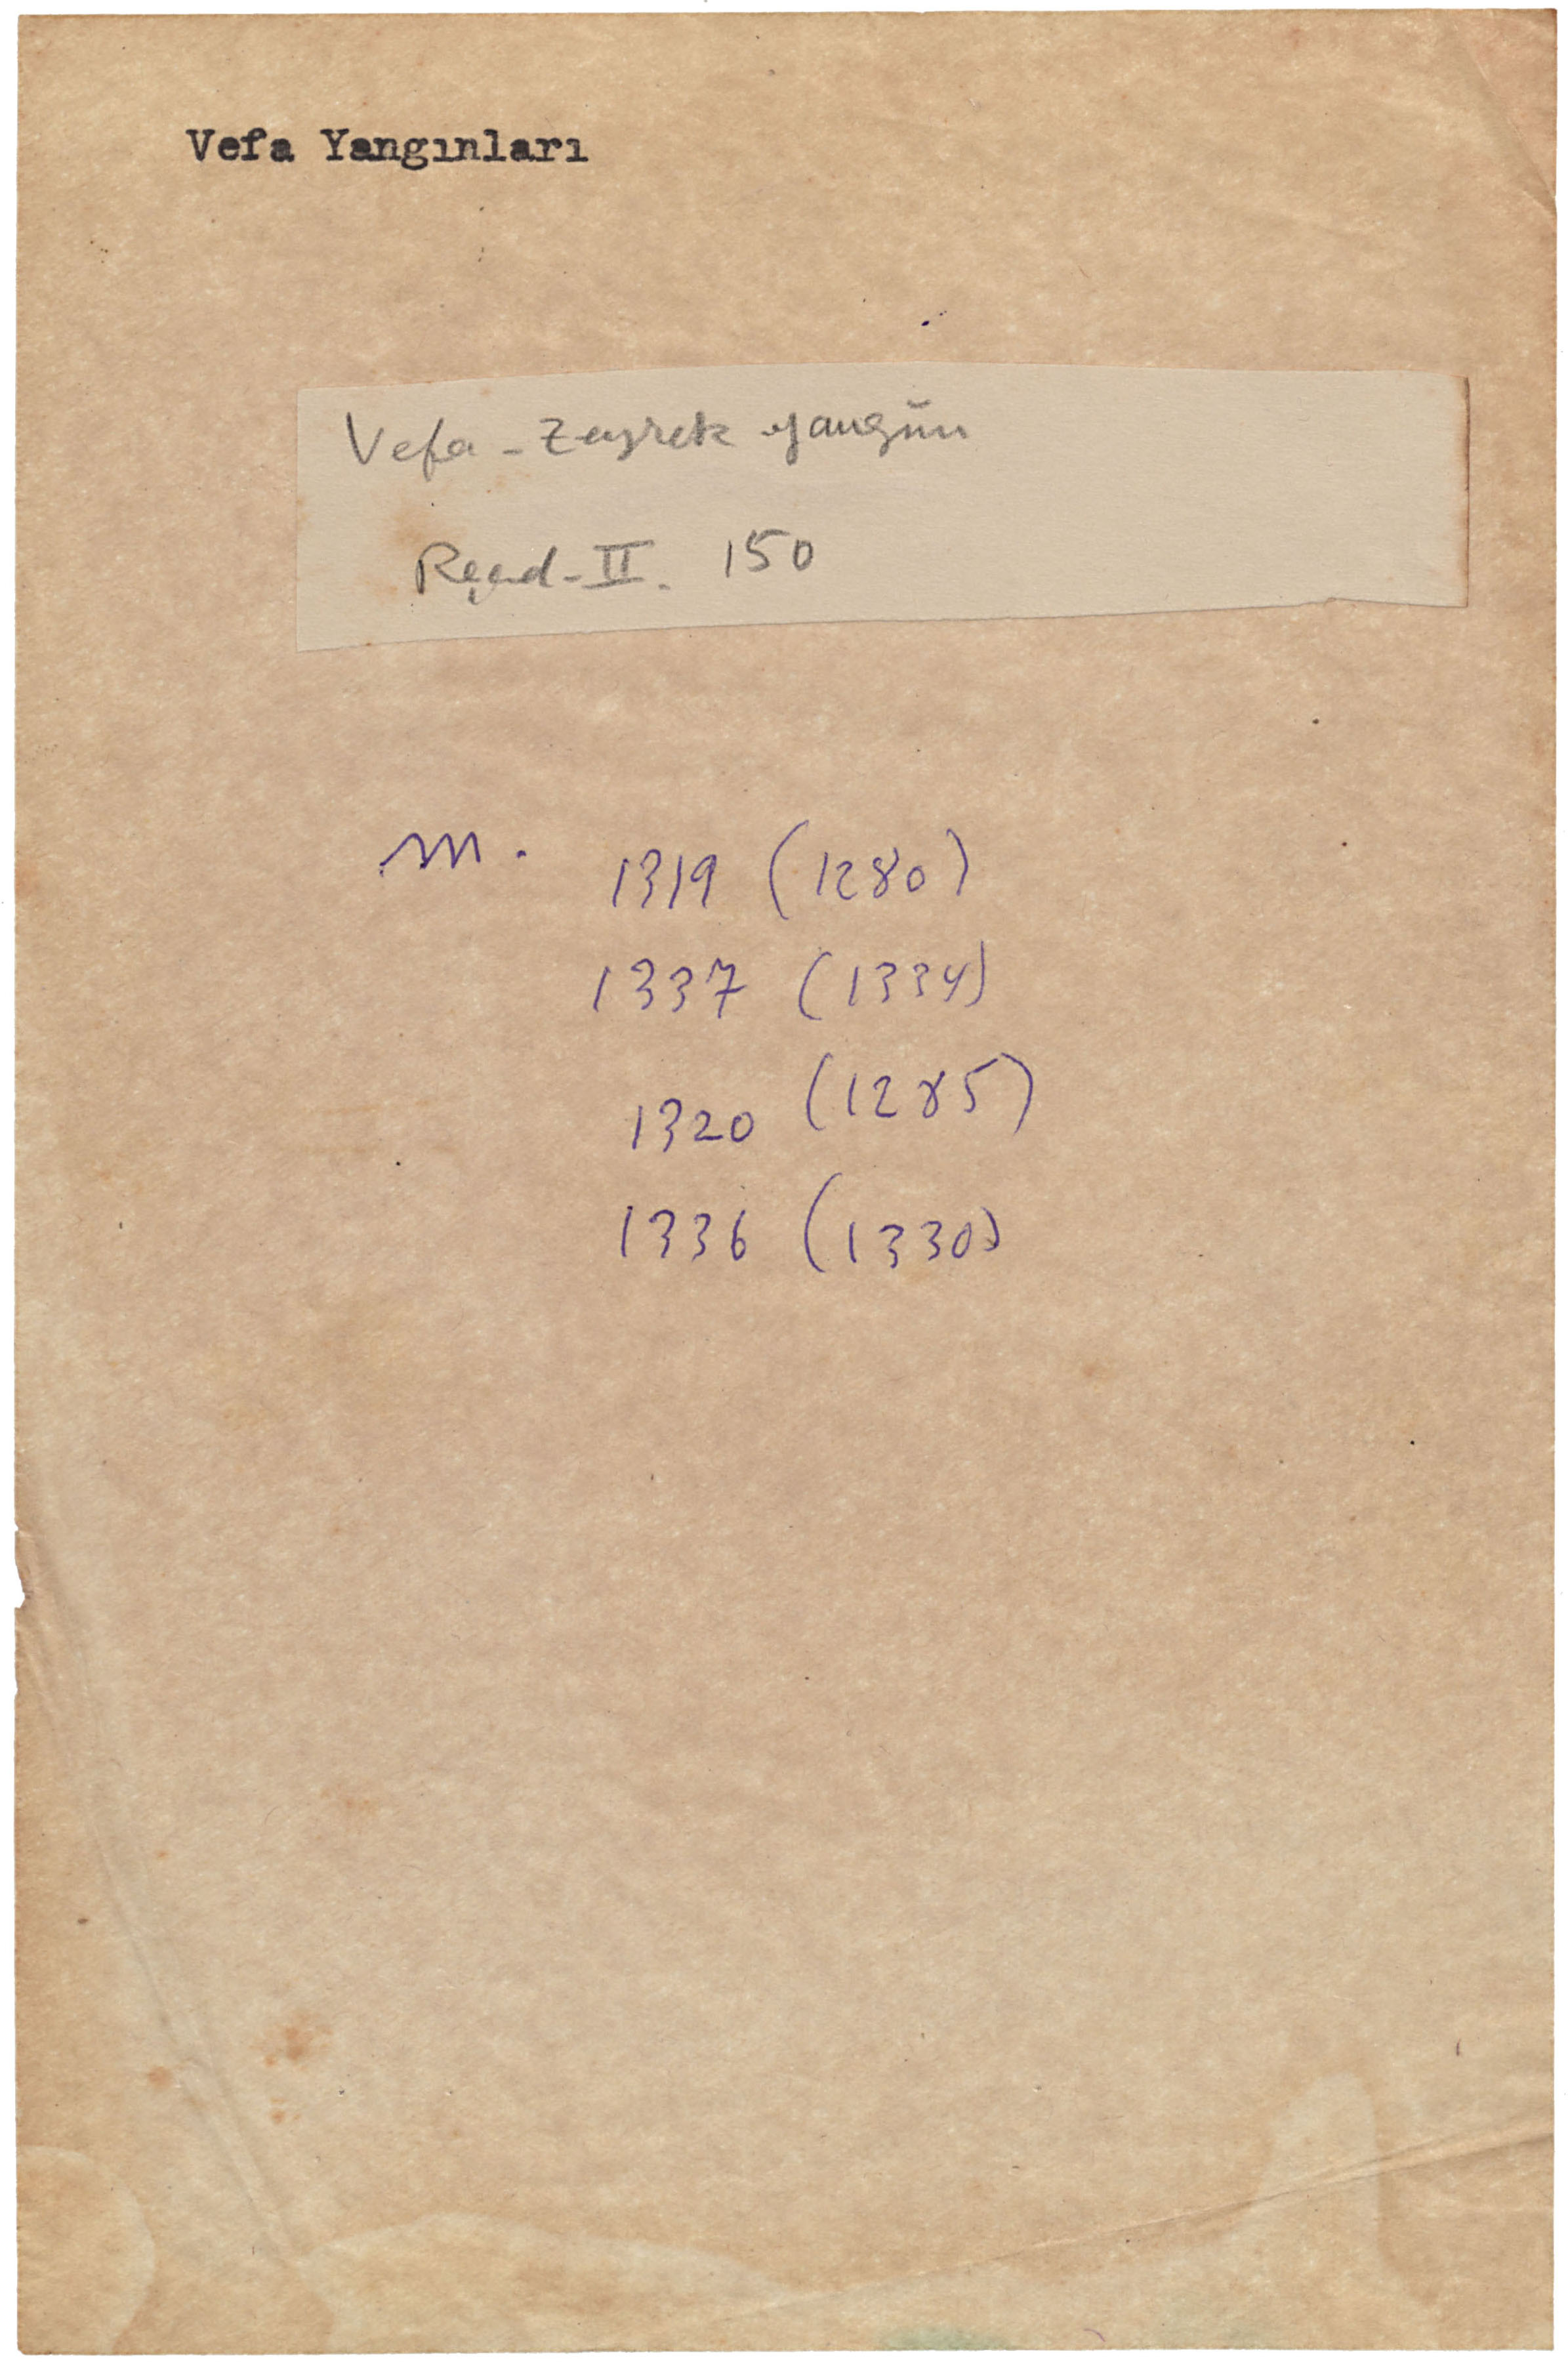 Vefa Yangınları
Vefa - Zeyrek yangını
Reşad - II. 150
M. 1319 (1280)
1337 (1334)
1320 (1285)
1336 (1330)